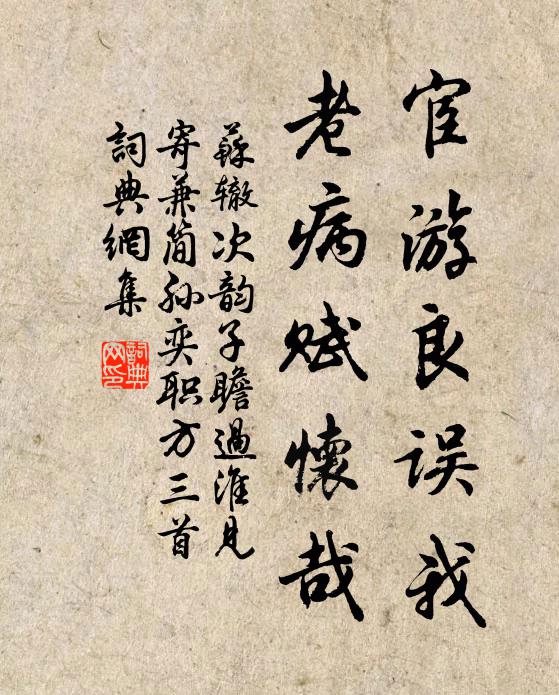 宦游良误我
老病赋懷哉
蘇辙次韵子瞻過淮見
寄兼简孙奕职方三首
詞典網集
詞典网印